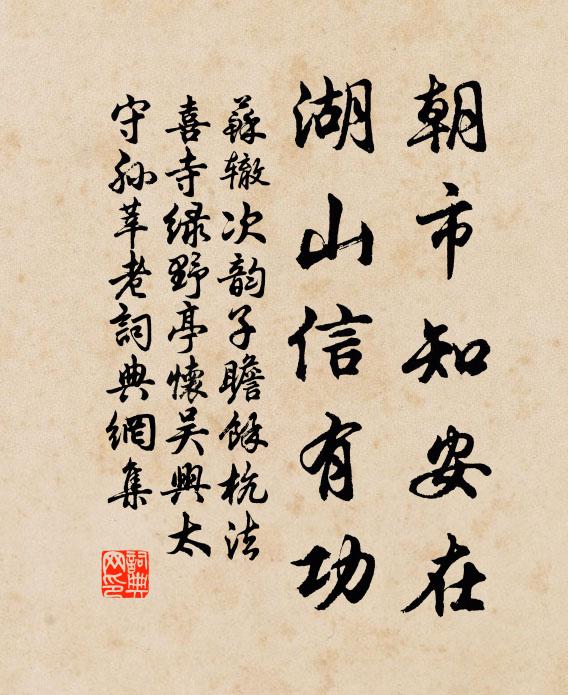 朝市知安在
湖山信有功
蘇辙次韵子瞻餘杭法
喜寺绿野亭懷吴興太
守孙莘老詞典網集
詞典網印